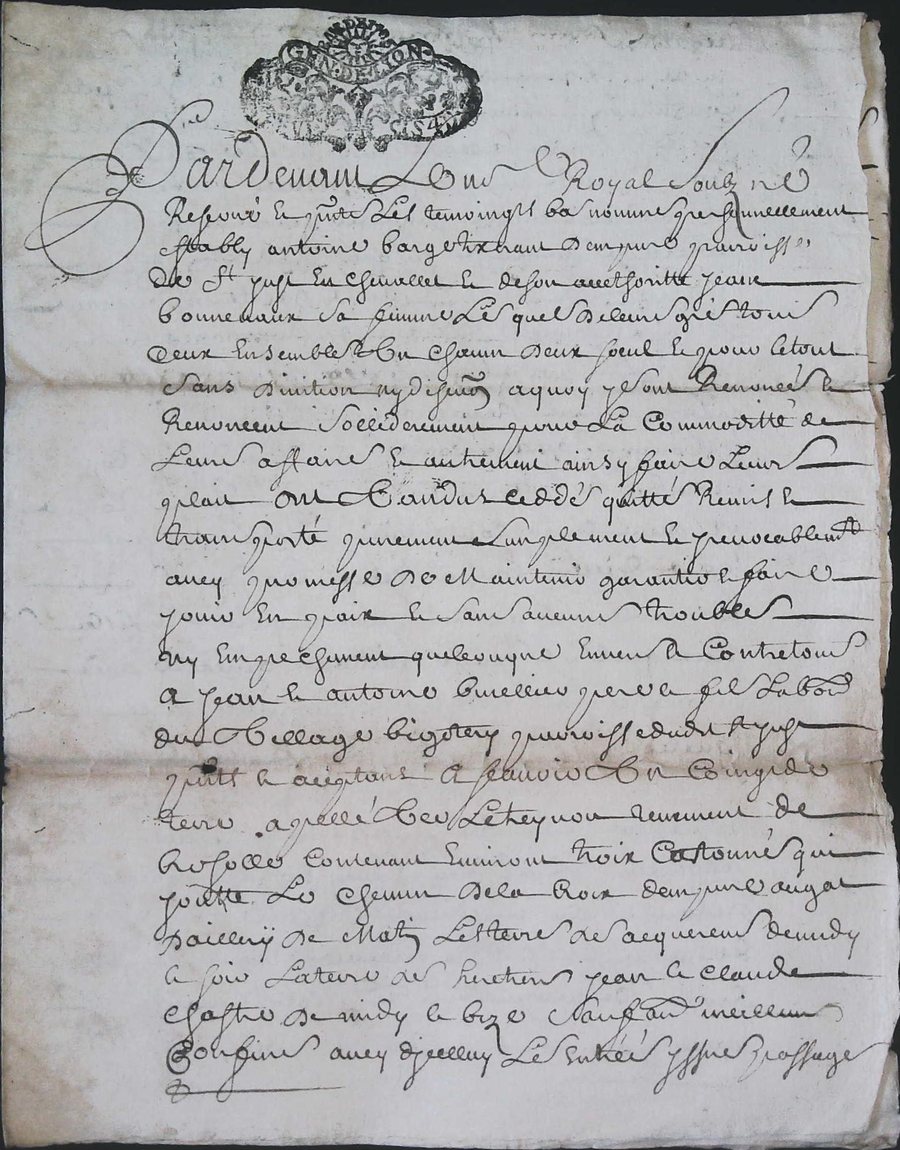 GEN · DE LION
Pardevant Le no.re Royal Soubz né
Reservé le Les temoingts bas nommes personnellement
estably antoine bargetix parroisse
de St just En chevallet le de son aucthoritté jeane
bonnevaux sa femme Les quels de leurs grés tous
deux Ensembles & Un chacun deux soeul le pour le tout
sans division ny a quoy jls ont Renoncés le
Renoncent sollèderement pour La Commoditté de
Leurs affaires le autrement ainsy faire Leurs
plait ont Vandus ceddés quittés Remis le
transporté purement Simplement le yrevocablemt
avecq promesse de Maintenir garantir le faire
jouir En paix le sans aucuns troubles
ny Empechement quelconque Envers le Contre tous
A jean le antoine pere le fils Labors
du Village bigotery parroisse dudit St just
pnts le acceptans A scavoir Un Coing de
terre apellé tenement de
Contenant Environt troix Cartonnés qui
joutte Le Chemin de la Croix
de Matin Les terres des acquereurs de midy
le soir La terre des heretiers jean le claude
chastre de midy le bize Sauf meilleurs
Confins avecq djcelluy Les Entrées yssues passage